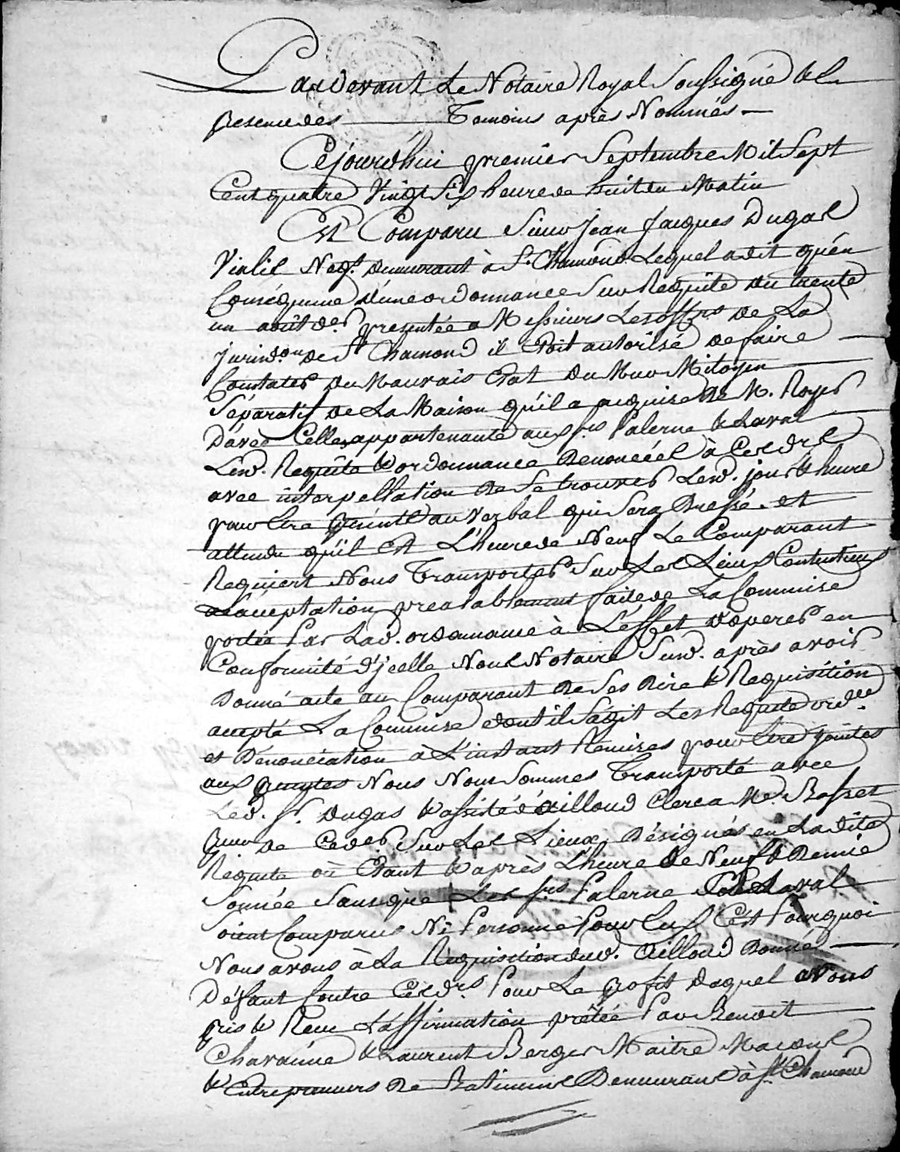 Pardevant Le Notaire Royal Soussigné & En
presence des Temoins après Nommés
Cejourdhui premier Septembre Mil Sept
Cent quatre Vingt Six heure de huit du Matin
Est Comparu Sieur Jean Jacques Dugas
Vialis Negt. demeurant à St. Chamond Lequel a dit qu'en
Conséquence d'une ordonnance Sur Requête du trente
un août dr. presentée a Messieurs Les offrs de La
Jurisdon de St Chamond il Etoit autorisé de faire
Constater du Mauvais Etat du Mur Mitoyen
Séparatif de La Maison qu'il a acquise de M. Royer
D'avec Celle appartenante aux Srs Palerne & Laval
Lesd. Requête & ordonnance denoncées à Cesd. Srs
avec interpellation de Se trouver Lesd. jour & heure
pour Etre présents au Verbal qui Sera Dressé. et
attendu qu'il est L'heure de Neuf Le Comparant
Requiert Nous Transporter Sur Les Lieux Contentieux
L'acceptation prealablement faite de La Commise
portée Par Lad. ordonnance à L'effet d'operer en
Conformité d'jcelle Nous Notaire Susd. après avoir
Donné acte au Comparant de Ses dire & Requisition
accepté La Commise dont il S'agit Les Requete ordce
et Denonciation à L'instant Remises pour Etre jointes
aux présentes Nous Nous Sommes Transporté avec
Led. Sr. Dugas & assisté d'Ailloud Clerc a Me. Bosset
Pur de Ced. Sur Les Lieux Désignés en Ladite
Requete où Etant & après L'heure de Neuf & Demie
Sonnée Sans que Les Srs Palerne & Laval
Soient Comparus Ni Personne Pour Eux C'est Pourquoi
Nous avons à La Requisition dud. Ailloud Donné
Défaut Contre Cesd. Srs Pour Le profit Duquel avons
pris & Reçu L'affirmation prêtée Par Benoit
Chavanne & Laurent Berger Maitre Macons
& Entrepreneurs de Batiment Demeurant à St. Chamond